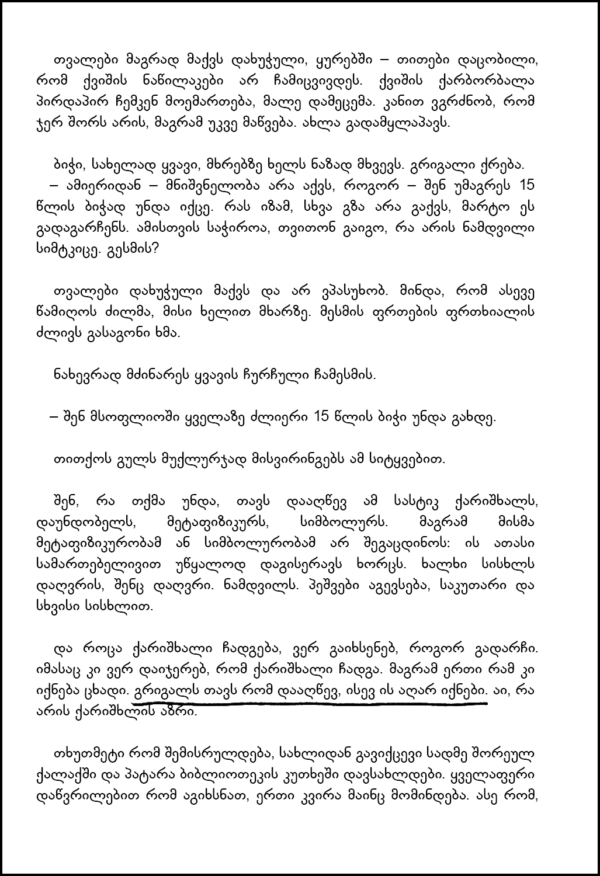 თვალები მაგრად მაქვს დახუჭული, ყურებში – თითები დაცობილი,
რომ ქვიშის ნაწილაკები არ ჩამიცვივდეს. ქვიშის ქარბორბალა
პირდაპირ ჩემკენ მოემართება, მალე დამეცემა. კანით ვგრძნობ, რომ
ჯერ შორს არის, მაგრამ უკვე მაწვება. ახლა გადამყლაპავს.
ბიჭი, სახელად ყვავი, მხრებზე ხელს ნაზად მხვევს. გრიგალი ქრება.
– ამიერიდან – მნიშვნელობა არა აქვს, როგორ – შენ უმაგრეს 15
წლის ბიჭად უნდა იქცე. რას იზამ, სხვა გზა არა გაქვს, მარტო ეს
გადაგარჩენს. ამისთვის საჭიროა, თვითონ გაიგო, რა არის ნამდვილი
სიმტკიცე. გესმის?
თვალები დახუჭული მაქვს და არ ვპასუხობ. მინდა, რომ ასევე
წამიღოს ძილმა, მისი ხელით მხარზე. მესმის ფრთების ფრთხიალის
ძლივს გასაგონი ხმა.
ნახევრად მძინარეს ყვავის ჩურჩული ჩამესმის.
– შენ მსოფლიოში ყველაზე ძლიერი 15 წლის ბიჭი უნდა გახდე.
თითქოს გულს მუქლურჯად მისვირინგებს ამ სიტყვებით.
შენ, რა თქმა უნდა, თავს დააღწევ ამ სასტიკ ქარიშხალს,
დაუნდობელს, მეტაფიზიკურს, სიმბოლურს. მაგრამ მისმა
მეტაფიზიკურობამ ან სიმბოლურობამ არ შეგაცდინოს: ის ათასი
სამართებელივით უწყალოდ დაგისერავს ხორცს. ხალხი სისხლს
დაღვრის, შენც დაღვრი. ნამდვილს. პეშვები აგევსება, საკუთარი და
სხვისი სისხლით.
და როცა ქარიშხალი ჩადგება, ვერ გაიხსენებ, როგორ გადარჩი.
იმასაც კი ვერ დაიჯერებ, რომ ქარიშხალი ჩადგა. მაგრამ ერთი რამ კი
იქნება ცხადი. გრიგალს თავს რომ დააღწევ, ისევ ის აღარ იქნები. აი, რა
არის ქარიშხლის აზრი.
თხუთმეტი რომ შემისრულდება, სახლიდან გავიქცევი სადმე შორეულ
ქალაქში და პატარა ბიბლიოთეკის კუთხეში დავსახლდები. ყველაფერი
დაწვრილებით რომ აგიხსნათ, ერთი კვირა მაინც მომინდება. ასე რომ,